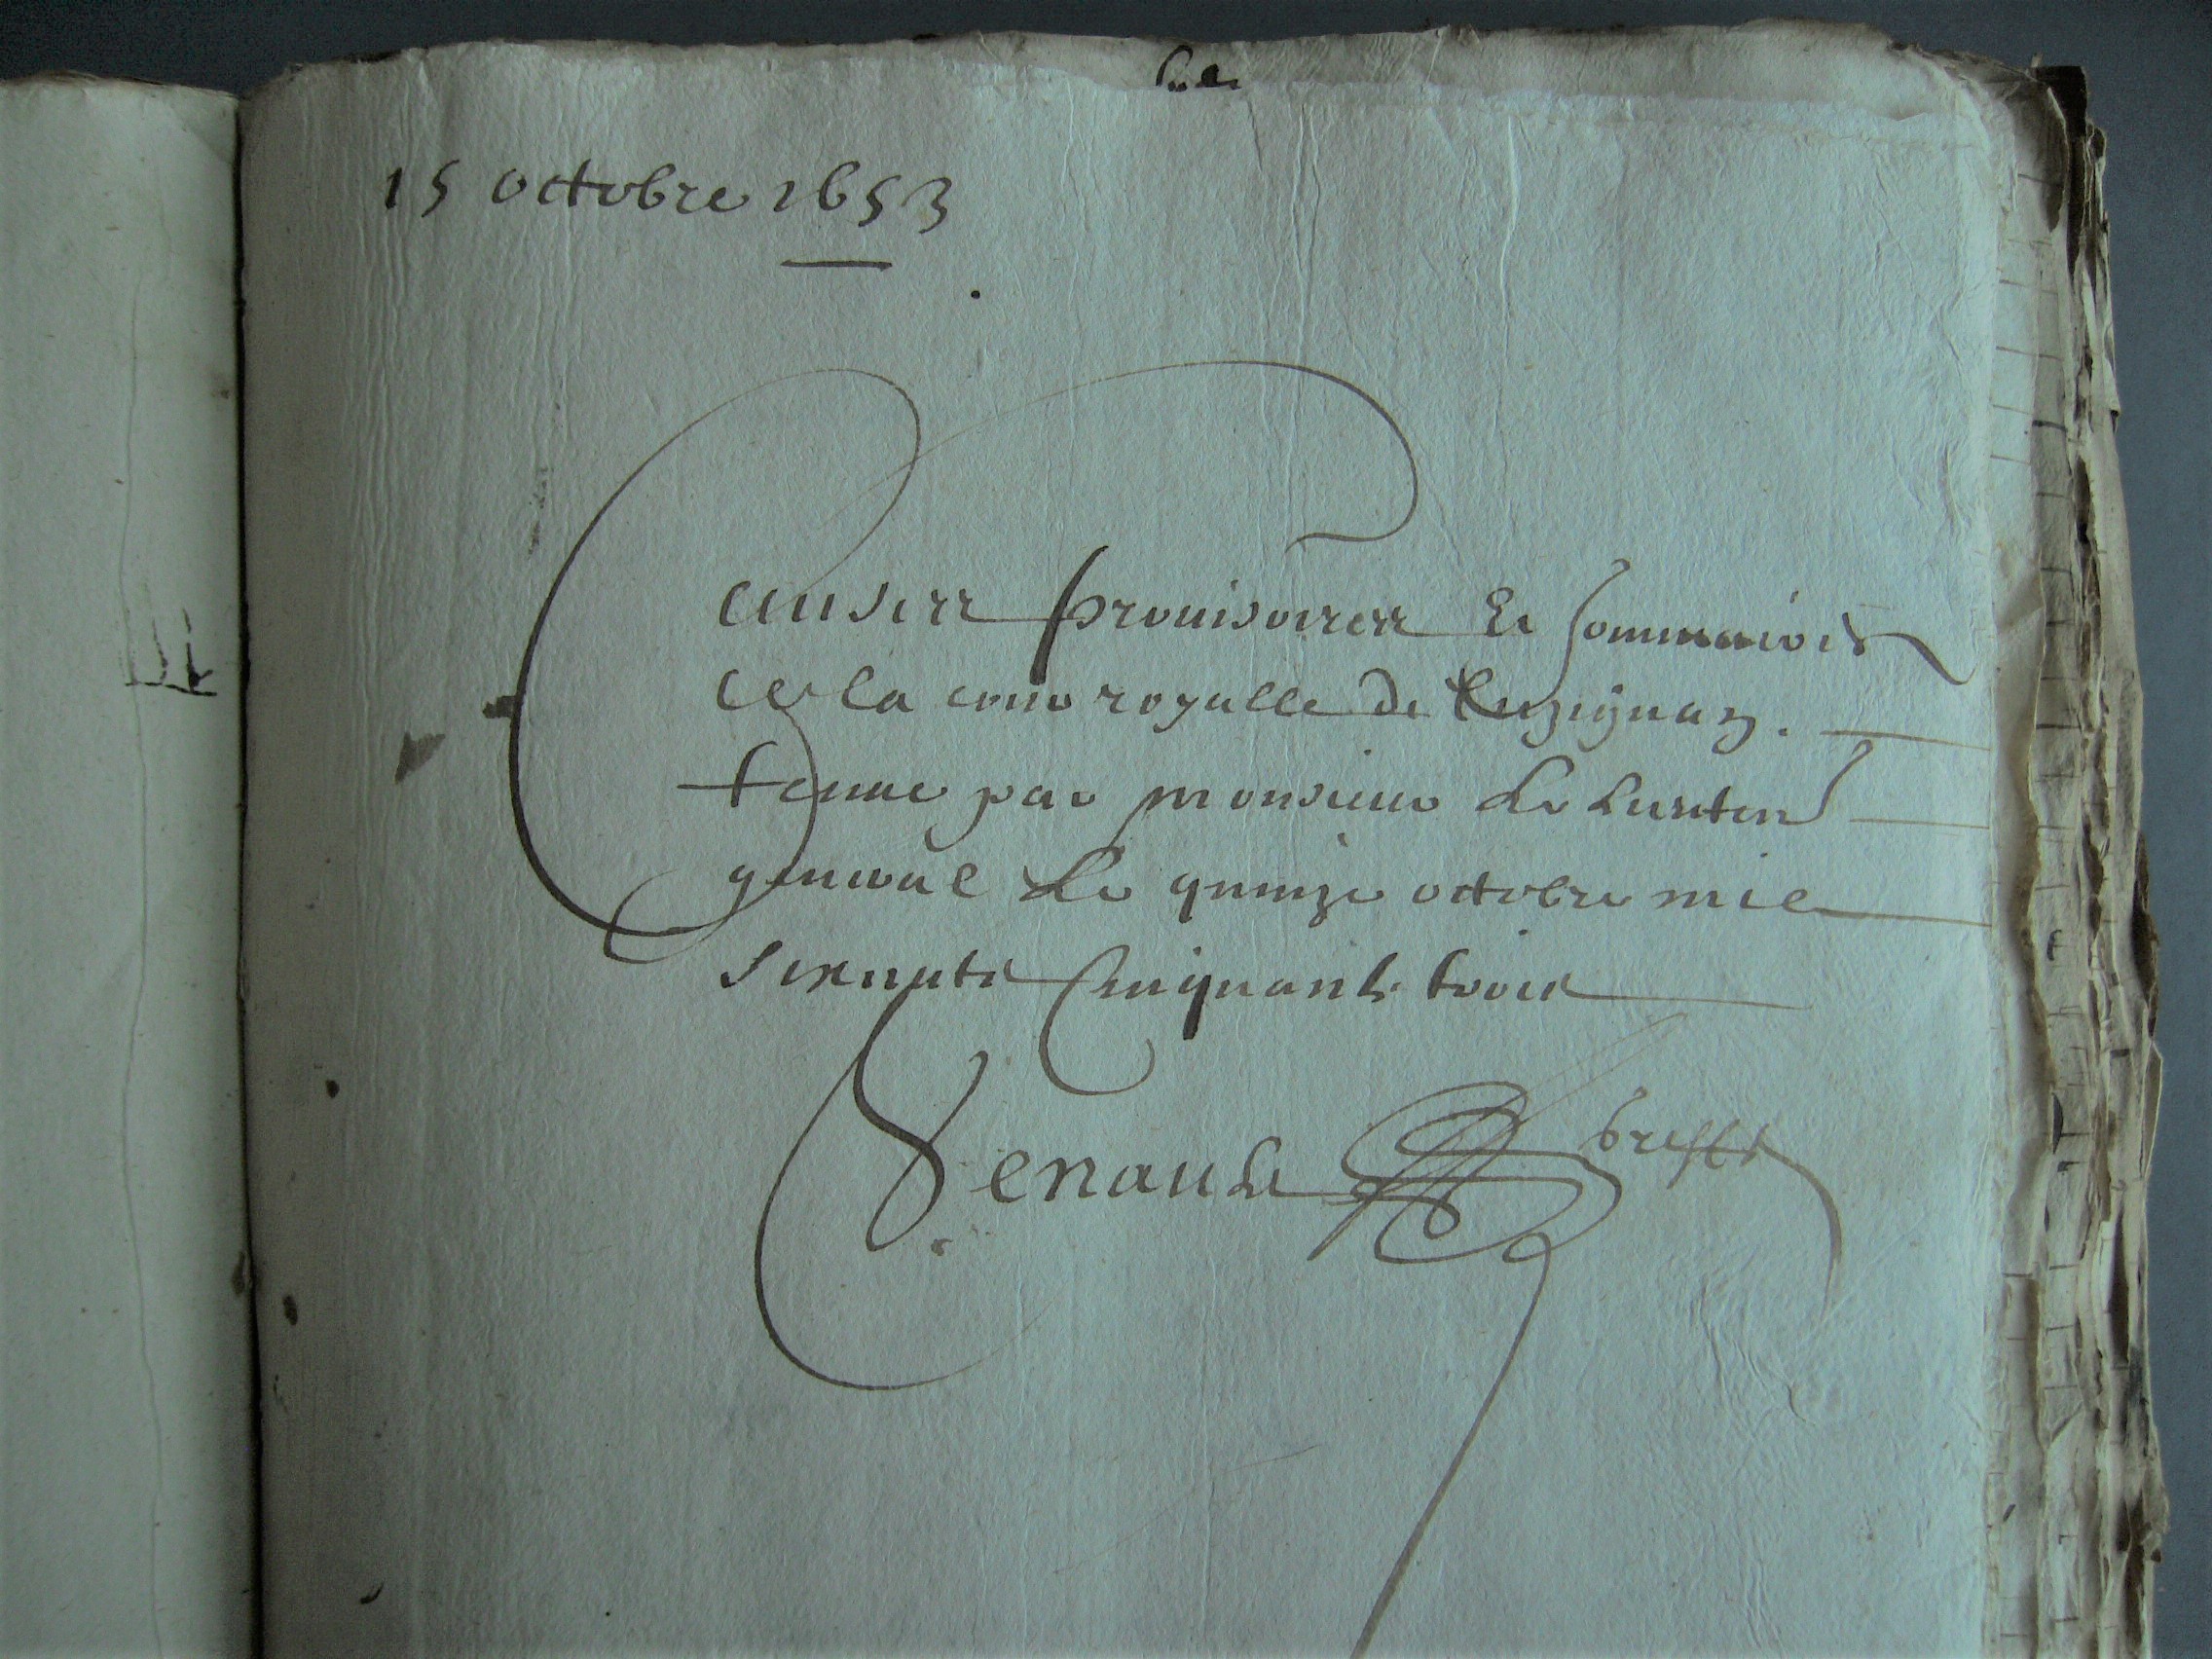 15 octobre 1653
Causes provisoires Et sommaires
de la cour royalle de Luzignan.
tenue par monsieur Le Lieuten
general Le quinze octobre mil
six cents Cinquante trois
greffe